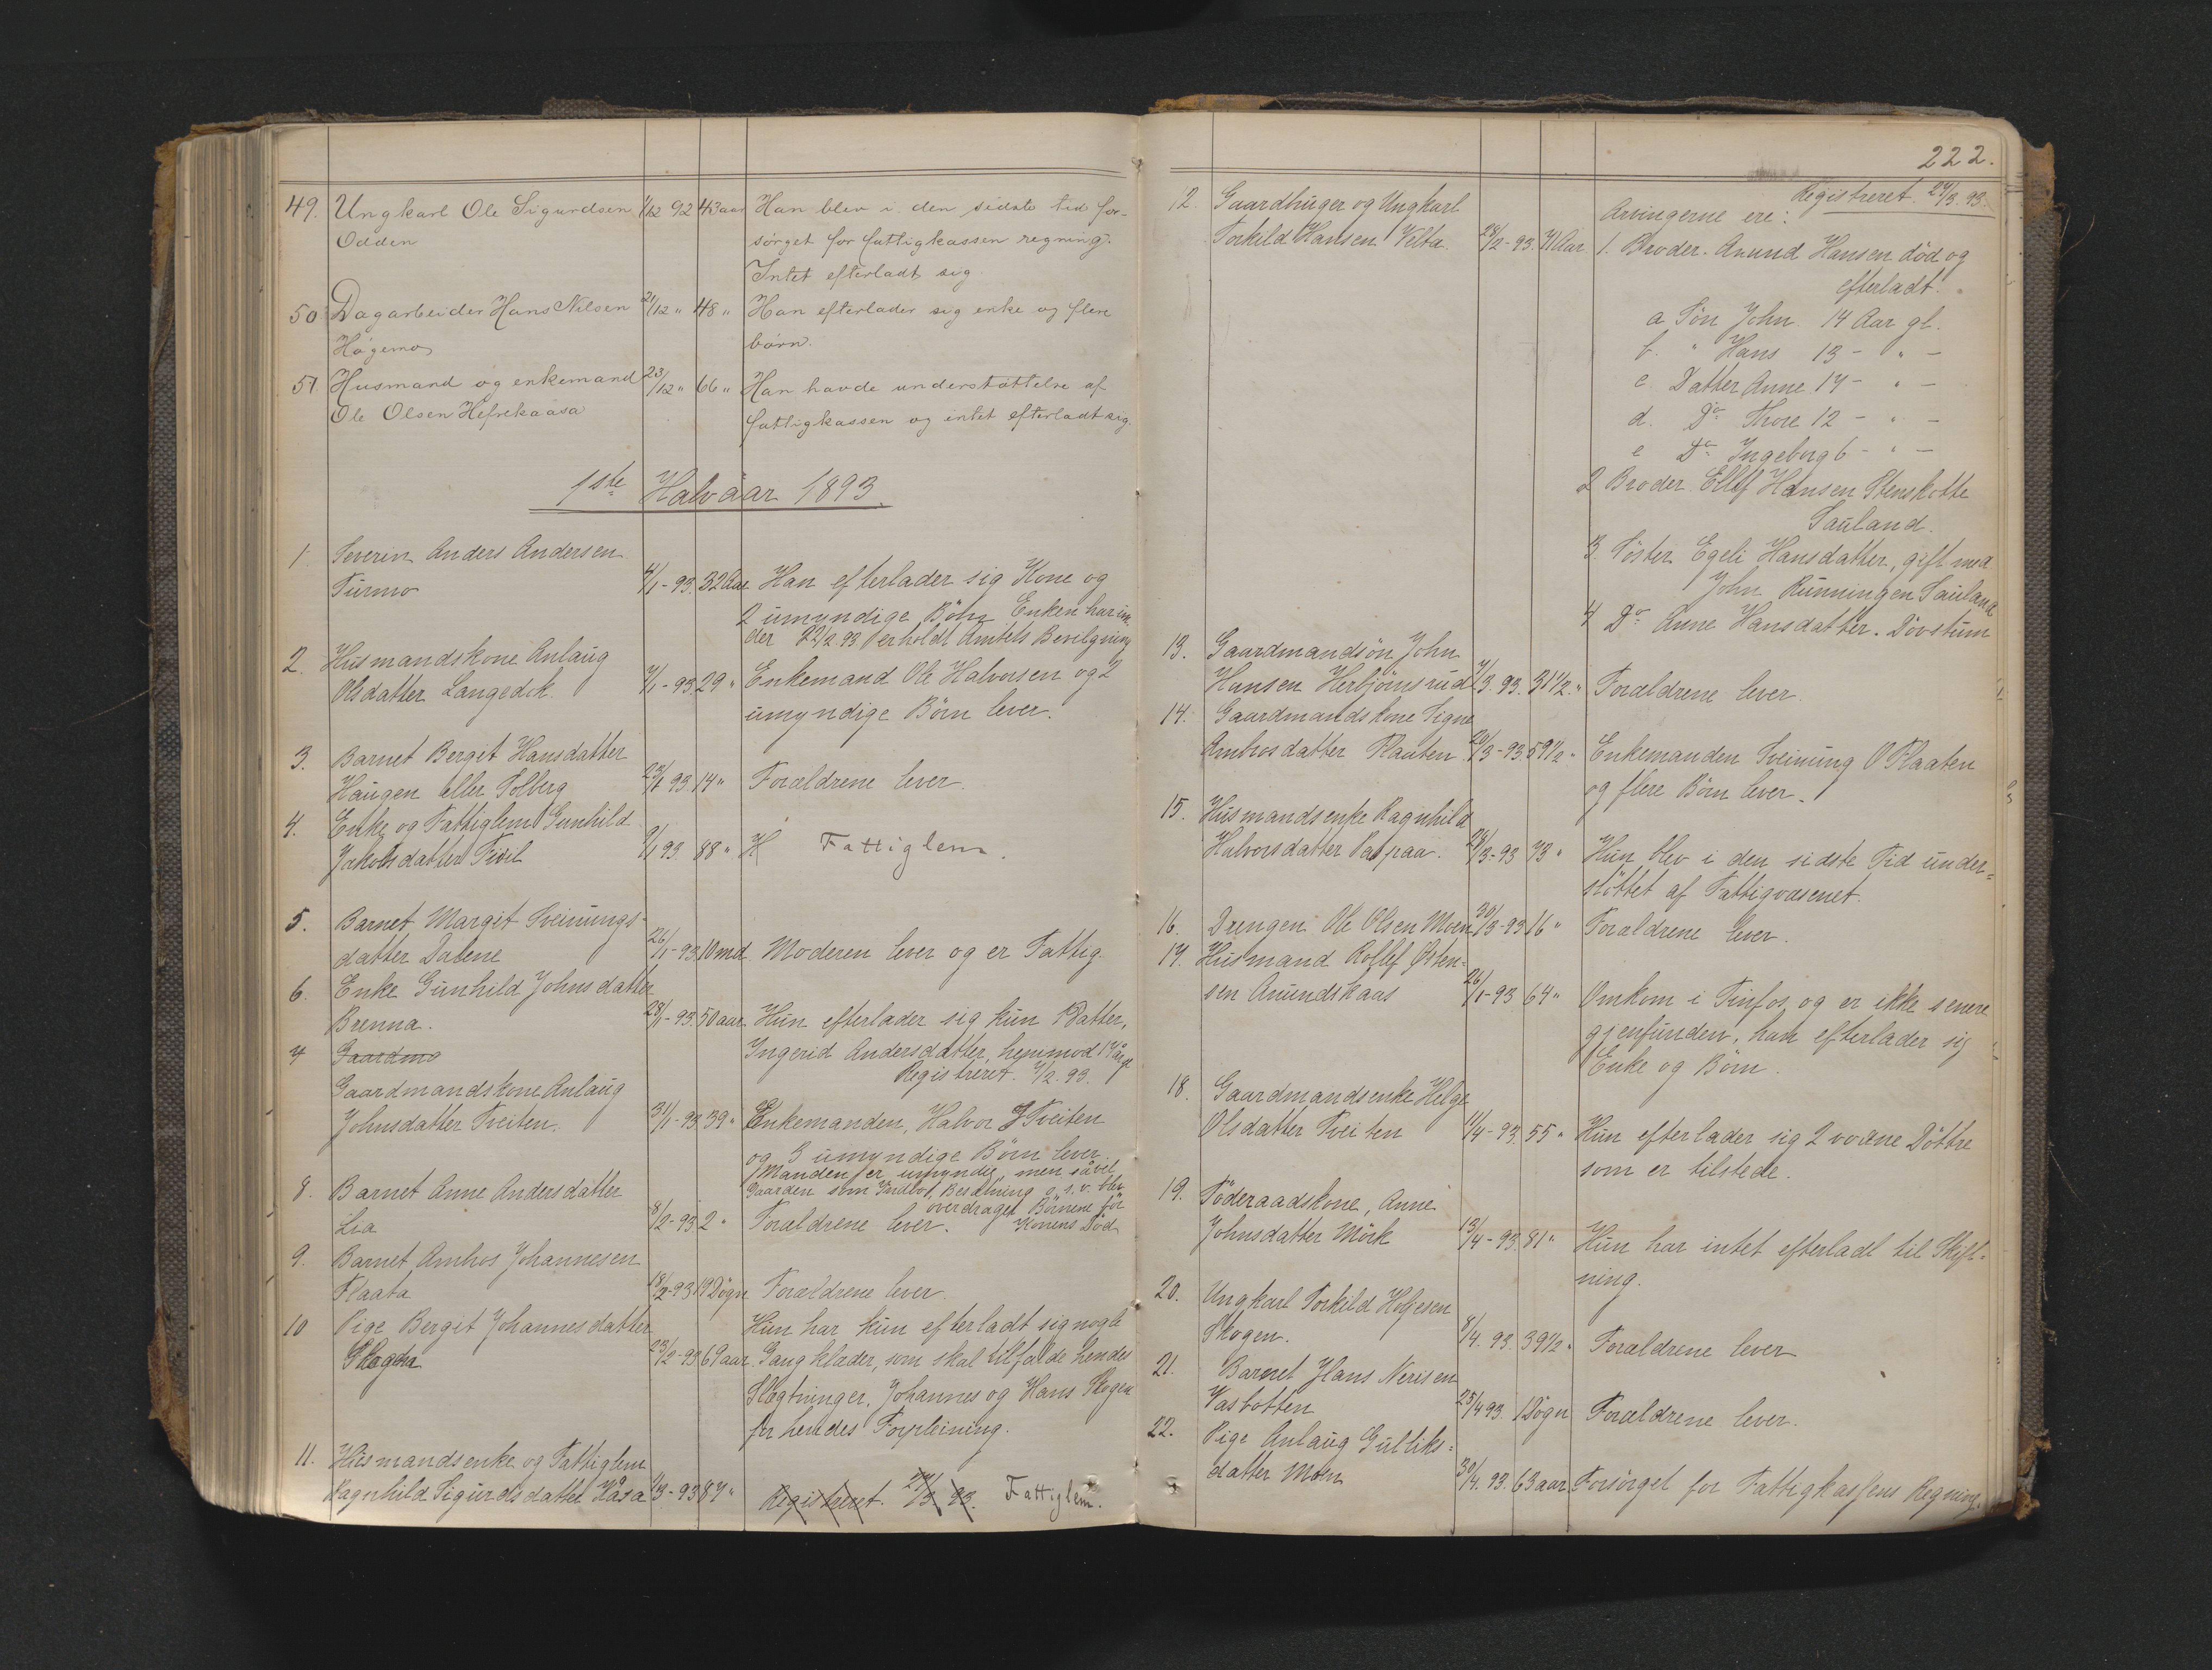 49. Ungkarl Ole Sigurdsen 1/12 92 43aar Han blev i den sidste tid for-
Odden sörget for fattigkassen regning.
Intet efterladt sig.
50 Dagarbeider Hans Nilsen 21/12 " 48 " Han efterlader sig enke og flere
Högemo börn.
51. Husmand og enkemand 23/12 " 66 " Han havde understøttelse af
Ole Olsen Hefrekaasa fattigkassen og intet efterladt sig.
1ste Halvåar 1893.
1. Severin Anders Andersen
Turmo 4/1-93. 32Aar Han efterlader sig Kone og
2 umyndige Börn Enken har un-
der 22/2 93 erholdt Amtets Bevilgning
2. Husmandskone Anlaug
Olsdatter Langedik. 7/1-93 29 " Enkemand Ole Halvorsen og 2
umyndige Börn lever.
3. Barnet Berget Hansdatter
Haugen eller Solberg 23/1 93. 14 " Forældrene lever.
4. Enke og Fattiglem Gunhild
Jakobsdatter Tveit 9/1 93. 88 " H Fattiglem.
5. Barnet Margit Sveinungs-
datter Dalene 26/1-93. 10md. Moderen lever og er Fattig.
6. Enke Gunhild Johnsdatter
Brenna. 28/1-93. 50aar. Hun efterlader sig kun 1 Datter,
7 Gaardma Ingerid Andersdatter, henimod 14 år gl
Registreret. 7/2. 93.
Gaardmandskone Anlaug
Johnsdatter Tveiten. 31/1-93. 39 " Enkemanden, Halvor J Tveiten
og 3 umyndige Börn lever.
Manden er umyndig, men såvel
Gaarden som Indbo, Besætning o. s. v. blev
8. Barnet Anne Andersdatter overdraget Börnene för
Lia 8/2-93 2 " Forældrene lever. Konens Död
9. Barnet Ambros Johannesen
Flaata 18/2-93 19Dögn Forældrene lever.
10 Pige Bergit Johannesdatter Hun har kun efterladt sig nogle
Skogen 23/2-93 69aar. Gangklæder, som skal tilfalde hendes
Slægtninger, Johannes og Hans Skogen
for hendes Forpleining.
11. Husmandsenke og Fattiglem
Ragnhild Sigurdsdatter Håsa 1/3-93 87 " Registreret. 24/3. 93. Fattiglem.
222.
Registreret. 24/3. 93.
12. Gaardbruger og Ungkarl Arvingerne ere:
Torkild Hansen Velta. 28/2-93. 71Aar 1. Broder. Anund Hansen död og
efterladt:
a Sön John 14 Aar gl.
b. " Hans 13 - " -
c. Datter Anne 14 - " -
d. Do Thore 12 - " -
e Do Ingeborg 6 - " -
2 Broder Ellef Hansen Stenskotte
Sauland.
3. Söster Egeli Hansdatter, gift med
John Runningen Sauland
4 Do Anne Hansdatter. Dövstum
13. Gaardmandsön John
Hansen Herbjörnsrud 7/3. 93. 31 1/2 " Forældrene lever.
14. Gaardmandskone Signe
Ambrosdatter Plaaten 20/3-93. 59 1/2 " Enkemanden Sveinung O Plaaten
og flere Börn lever.
15. Husmandsenke Ragnhild
Halvorsdatter Paapaa. 28/3-93 73 " Hun blev i den sidste Tid under=
støttet af Fattigvæsenet.
16. Drengen Ole Olsen Moen 30/3-93 16 " Forældrene lever.
17. Husmand Rollef Østen-
sen Anundskaas 26/1-93 64 " Omkom i Tinfos, og er ikke senere
gjenfunden, han efterlader sig
Enke og Börn.
18. Gaardmandsenke Helge
Olsdatter Tveiten 11/4-93. 55 " Hun efterlader sig 2 voxne Döttre
som er tilstede.
19. Föderaadskone, Anne
Johnsdatter Mörk 13/4-93. 81 " Hun har intet efterladt til Skift-
ning.
20. Ungkarl Torkild Holjesen
Skogen. 8/4. 93. 39 1/2 " Forældrene lever
21. Barnet Hans Nerisen
Vasbotten 25/4 93. 1Dögn Forældrene lever.
22. Pige Anlaug Gulliks=
datter Moen 30/4. 93. 63aar Forsörget for Fattigkassens Regning.